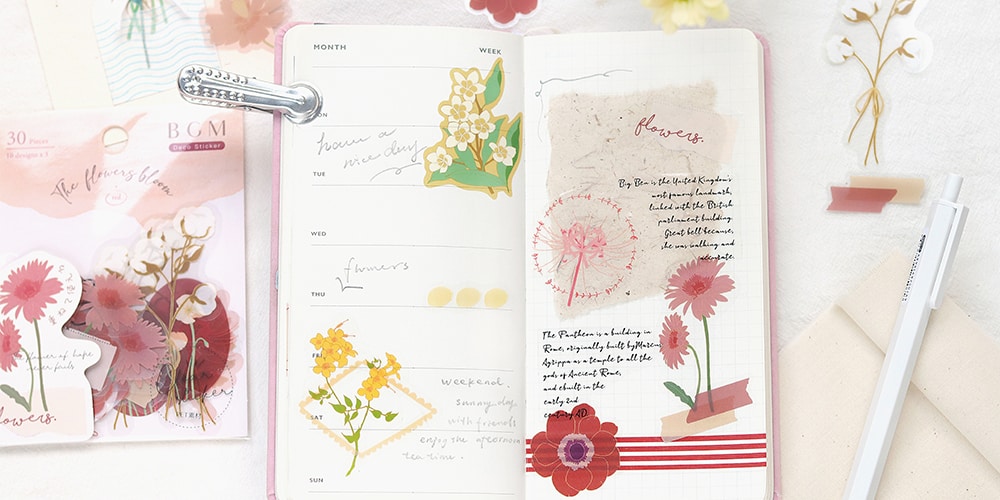 30 Pieces
10 designs x 3
BGM
Deco Sticker
The flowers bloom
The flower of hope
never fails
flowers.
MONTH
WEEK
MON
have a
nice day
TUE
WED
flowers
THU
FRI
SAT
weekend.
sunny day
with friends
enjoy the afternoon
tea time.
SUN
flowers.
Big Ben is the United Kingdom's
most famous landmark,
linked with the British
parliament building.
Great bell because,
she was walking and
decorate.
The Pantheon is a building in
Rome, originally built by Marcus
Agrippa as a temple to all the
gods of Ancient Rome,
and ebuilt in the
early 2nd
century AD.